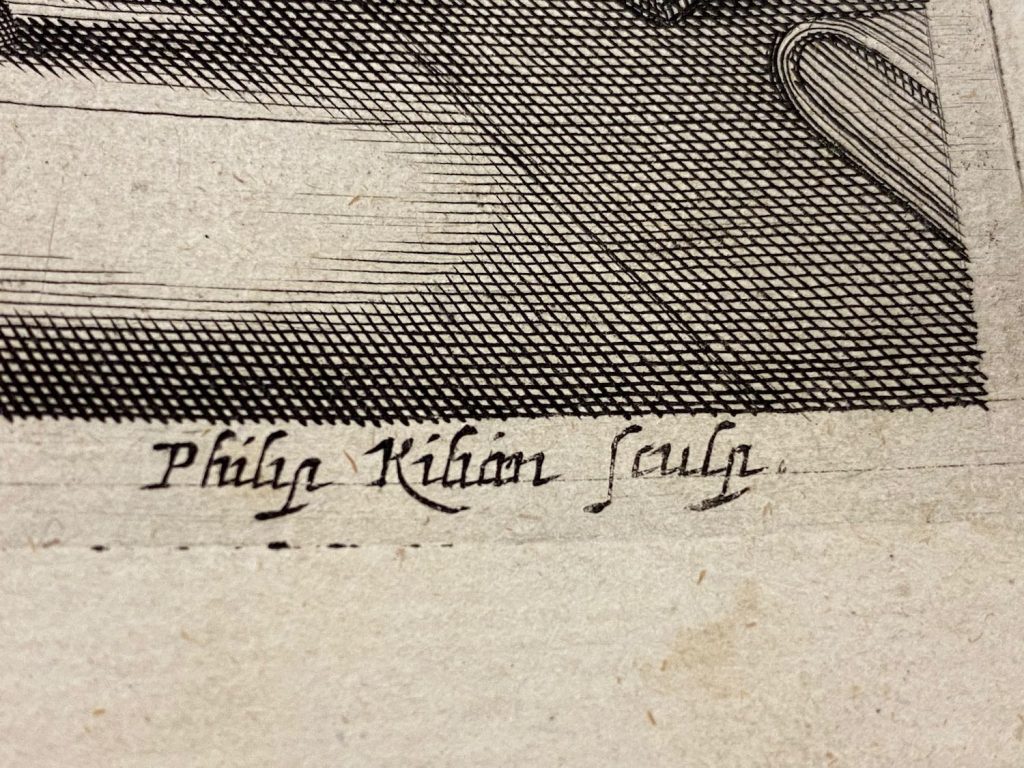 Philip Kilian sculp.